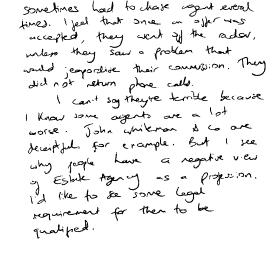 sometimes had to chase agent several
times. I feel that once an offer was
accepted, they went off the radar,
unless they saw a problem that
would jeopardise their commission. They
did not return phone calls.
I can't say they're terrible because
I know some agents are a lot
worse. John Whiteman & co are
deceptful for example. But I see
why people have a negative view
of Estate Agency as a profession.
I'd like to see some legal
requirement for them to be
qualified.